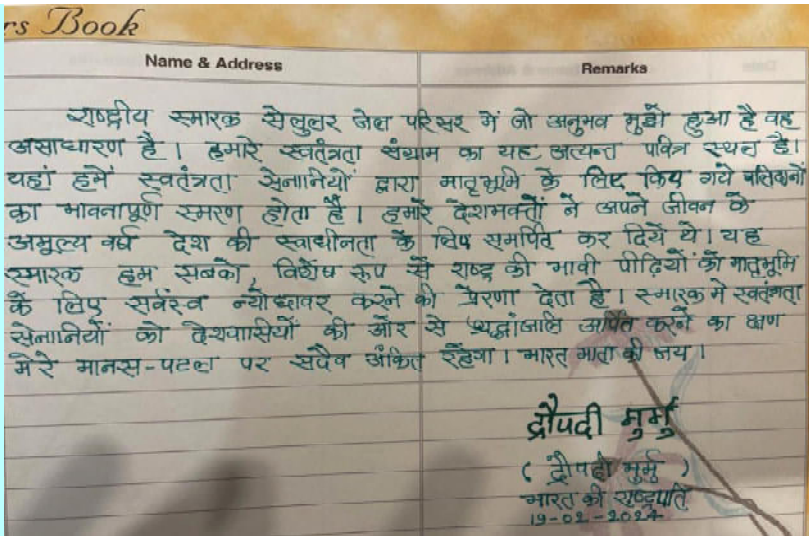 rs Book
Name & Address
Remarks
राष्ट्रीय स्मारक सेलुलर जेल परिसर में जो अनुभव मुझे हुआ है वह
असाधारण है। हमारे स्वतंत्रता संग्राम का यह अत्यन्त पवित्र स्थल है।
यहां हमें स्वतंत्रता सेनानियों द्वारा मातृभूमि के लिए किए गये बलिदानों
का भावनापूर्ण स्मरण होता है। हमारे देशभक्तों ने अपने जीवन के
अमूल्य वर्ष देश की स्वाधीनता के लिए समर्पित कर दिये थे। यह
स्मारक हम सबको, विशेष रूप से राष्ट्र की भावी पीढ़ियों को मातृभूमि
के लिए सर्वस्व न्योछावर करने की प्रेरणा देता है। स्मारक मे स्वतंत्रता
सेनानियों को देशवासियों की ओर से श्रद्धांजलि अर्पित करने का क्षण
मेरे मानस-पटल पर सदैव अंकित रहेगा। भारत माता की जय।
द्रौपदी मुर्मु
( द्रौपदी मुर्मु )
भारत की राष्ट्रपति
19-02-2024